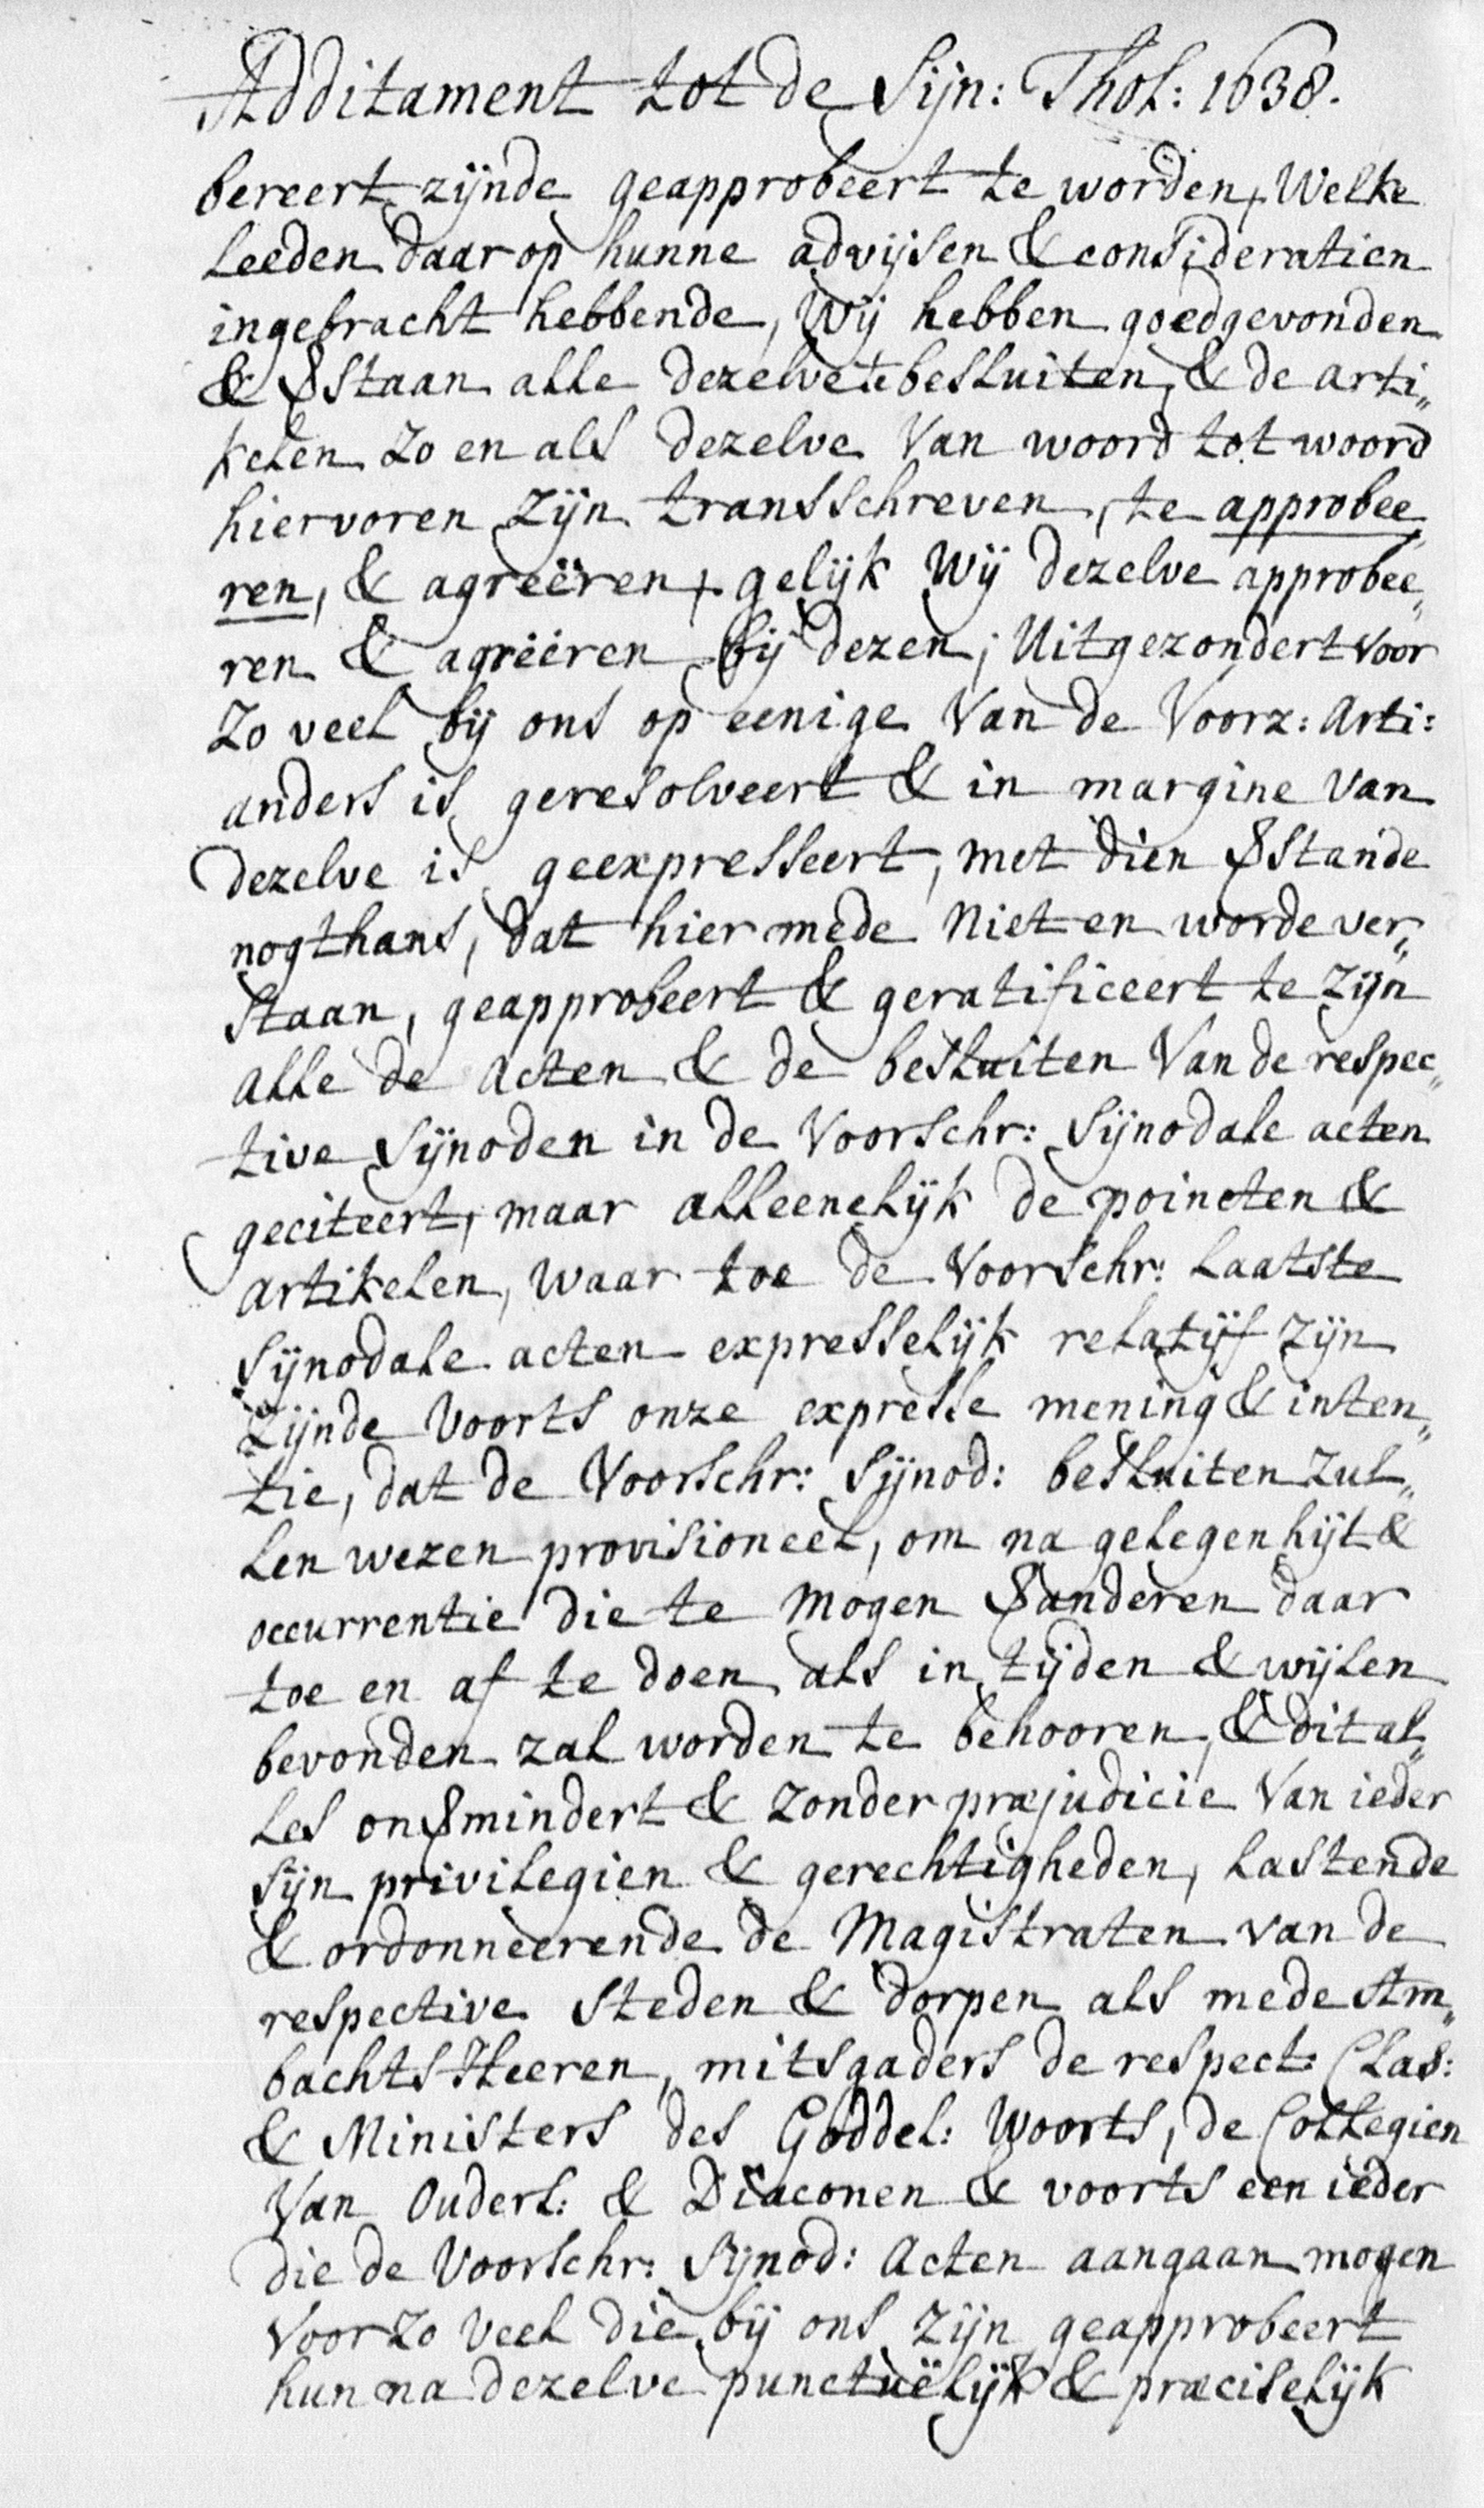 Additament tot de Sijn: Thol: 1638.
bereert zijnde geapprobeert te worden, Welke
Leeden daar op hunne advijsen & consideratien
ingebracht hebbende, Wij hebben goedgevonden
& Sstaan alle dezelve te besluiten, & de arti„
kelen zo en als dezelve Van woord tot woord
hiervoren zijn transschreven, te approbee„
ren, & agreëren, gelijk Wij dezelve approbee„
ren & agreëren bij dezen; Uitgezondert voor
Zo veel bij ons op eenige Van de Voorz: Arti:
anders is geresolveert & in margine van
dezelve is geexpresseert, met dien Sstande
nogthans, dat hier mede Niet en worde ver„
staan, geapprobeert & geratificeert te zijn
alle de Acten & de besluiten Van de respec„
tive Sijnoden in de Voorschr: Sijnodale acten
geciteert, maar alleenelijk de poincten &
artikelen, waar toe de Voorschr: Laatste
Sijnodale acten expresselijk relatijf zijn
Zijnde Voorts onze expresse mening & inten„
tie, dat de Voorschr: Sijnod: besluiten zul„
len wezen provisioneel, om na gelegenhijt &
occurrentie die te mogen Sanderen daar
toe en af te doen als in tijden & wijlen
bevonden zal worden te behooren, & dit al„
les onSmindert & zonder præjudicie Van ieder
sijn privilegien & gerechtigheden, Lastende
& ordonneerende de Magistraten van de
respective steden & dorpen als mede Am„
bachts Heeren, mitsgaders de respect: Clas:
& Ministers des Goddel: Woorts, de Collegien
Van Ouderl: & Diaconen & voorts een ieder
die de Voorschr: Sijnod: Acten aangaan mogen
Voor zo Veel die bij ons zijn geapprobeert
hun na dezelve punctuëlijk & præciselijk